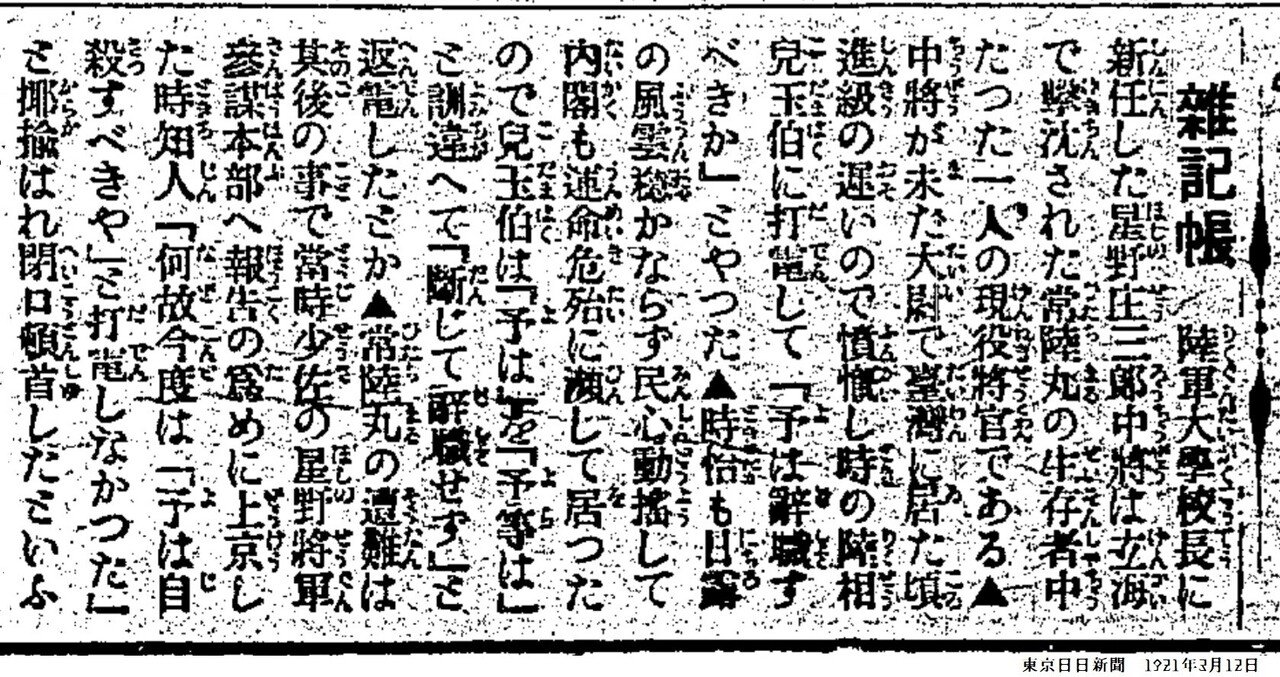 雜記帳　陸軍大學校長に
新任した星野庄三郎中將は立海
で擊沈された常陸丸の生存者中
たつた一人の現役將官である▲
中將が未た大尉で臺灣に居た頃
進級の遲いので憤慨し時の陸相
兒玉伯に打電して「予は辭職す
べきか」とやつた▲時恰も日露
の風雲穩かならず民心動搖して
内閣も運命危殆に瀕して居つた
ので兒玉伯は「予は」を「予等は」
と訓違へて「斷じて辭職せず」と
返電したとか▲常陸丸の遭難は
其後の事で當時少佐の星野將軍
參謀本部へ報告の爲めに上京し
た時知人「何故今度は「予は自
殺すべきや」と打電しなかつた」
と揶揄はれ閉口頓首したといふ
東京日日新聞　1921年3月12日